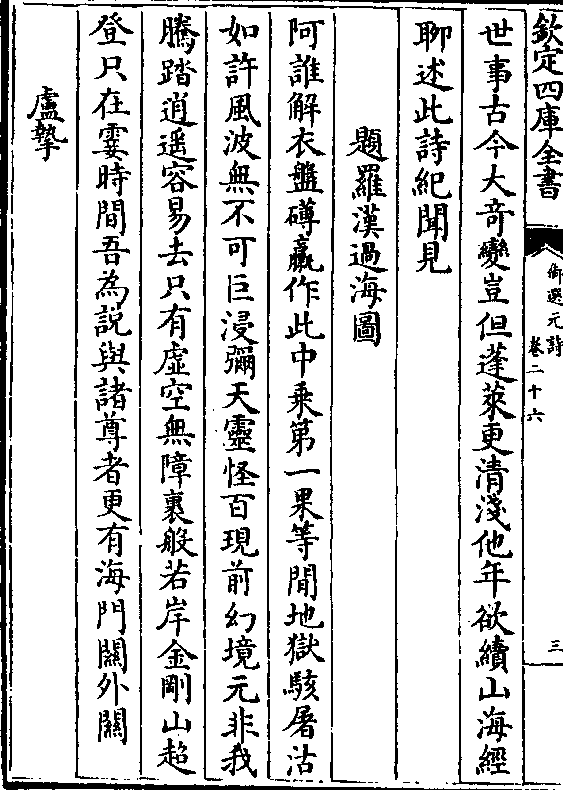 欽定四庫全書
御選元詩
卷二十六
三
世事古今大竒變豈但蓬萊更清淺他年欲續山海經
聊述此詩紀聞見
題羅漢過海圖
阿誰解衣盤礴羸作此中乘第一果等閒地獄駭屠沽
如許風波無不可巨浸彌天靈怪百現前幻境元非我
騰踏逍遥容易去只有虚空無障裹般若岸金剛山超
登只在霎時間吾為説與諸尊者更有海門闗外闗
盧摯